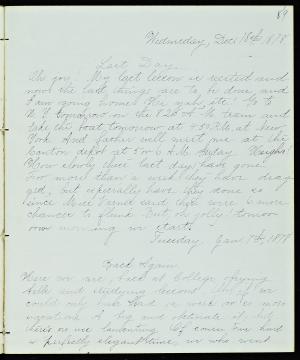 89
Wednesday, Dec. 18th, 1878
Last Day.
Oh joy! My last lesson is recited and
now the last things are to be done, and
I am going home! Go to
N. Y. tomorrow on the A. M. train and
take the boat tomorrow at 4.30 P.M. at New
York. And father will meet me at the
Canton depot at 5 A.M. Friday.
How slowly these last days have gone!
For more than a week they have drag
ged, but especially have they done so
since said there were 6 more
chances to flunk. But, oh jolly! tomor
row morning we start.
Tuesday, Jan. 7th, 1879
Back Again.
Here we are, back at College, trying
talk and studying lessons. We
could only have had a week or so more
vacation. A big and obstinate if, but
there's no use lamenting. Of course I've had
a perfectly elegant time, in who went